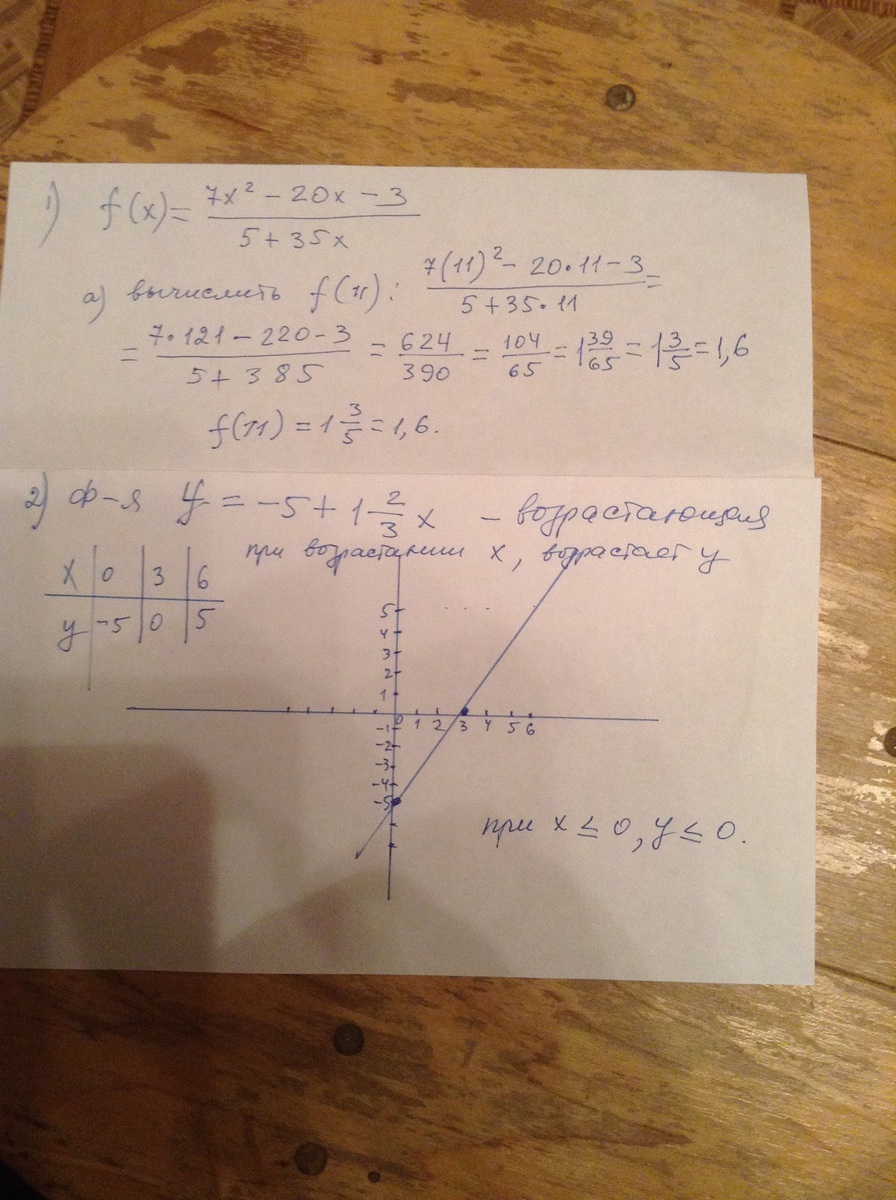 1) f(x) = (7x² - 20x - 3)/(5 + 35x)
а) вычислить f(11): (7(11)² - 20·11 - 3)/(5 + 35·11) =
= (7·121 - 220 - 3)/(5 + 385) = 624/390 = 104/65 = 1 39/65 = 1 3/5 = 1,6
f(11) = 1 3/5 = 1,6.
2) ф-я y = -5 + 1 2/3 x - возрастающая
при возрастании x, возрастает y
x | 0 | 3 | 6
y | -5 | 0 | 5
5
4
3
2
1
0 1 2 3 4 5 6
-1
-2
-3
-4
-5
при x ≤ 0, y ≤ 0.